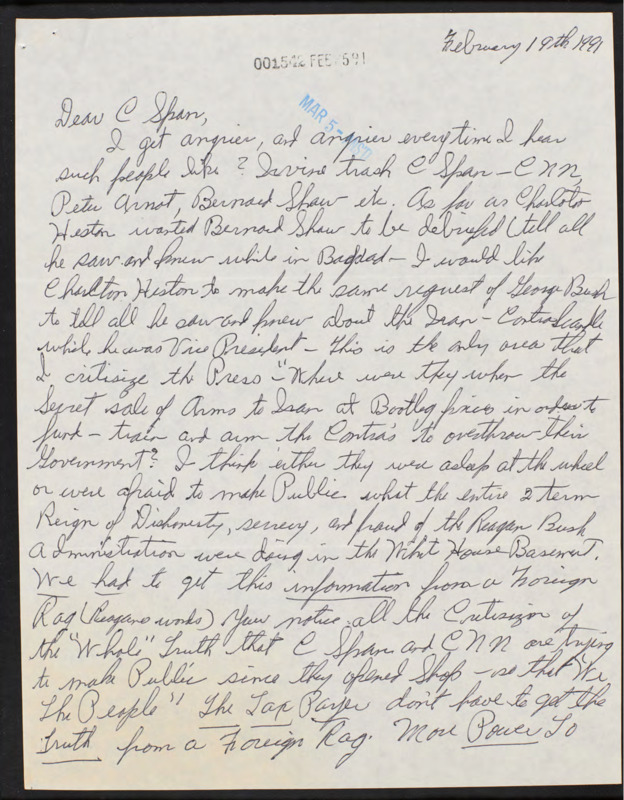 February 19th 1991
001542 FEB 591
MAR 5-
Dear C Span,
I get angrier, and angrier everytime I hear
such people like ? Irvine trash C Span - CNN,
Peter Arnot, Bernard Shaw etc. As far as Charlton
Heston wanted Bernard Shaw to be debriefed (tell all
he saw and knew while in Bagdad - I would like
Charlton Heston to make the same request of George Bush
to tell all he saw and knew about the Iran - Contra Scandle
while he was Vice President - This is the only area that
I critisize the Press - "Where were they when the
Secret sale of Arms to Iran at Bootleg prices in order to
fund - train and arm the Contra's to overthrow their
Government? I think either they were asleep at the wheel
or were afraid to make Public what the entire 2 term
Reign of Dishonesty, secrecy, and fraud of the Reagan Bush
administration were doing in the White House Basement.
We had to get this information from a Foreign
Rag (Reagans words) Your notice all the Critisizm of
the "Whole" Truth that C Span and CNN are trying
to make Public since they opened Shop - so that "We
The People"! The Tax Payer don't have to get the
Truth from a Foreign Rag. More Power To